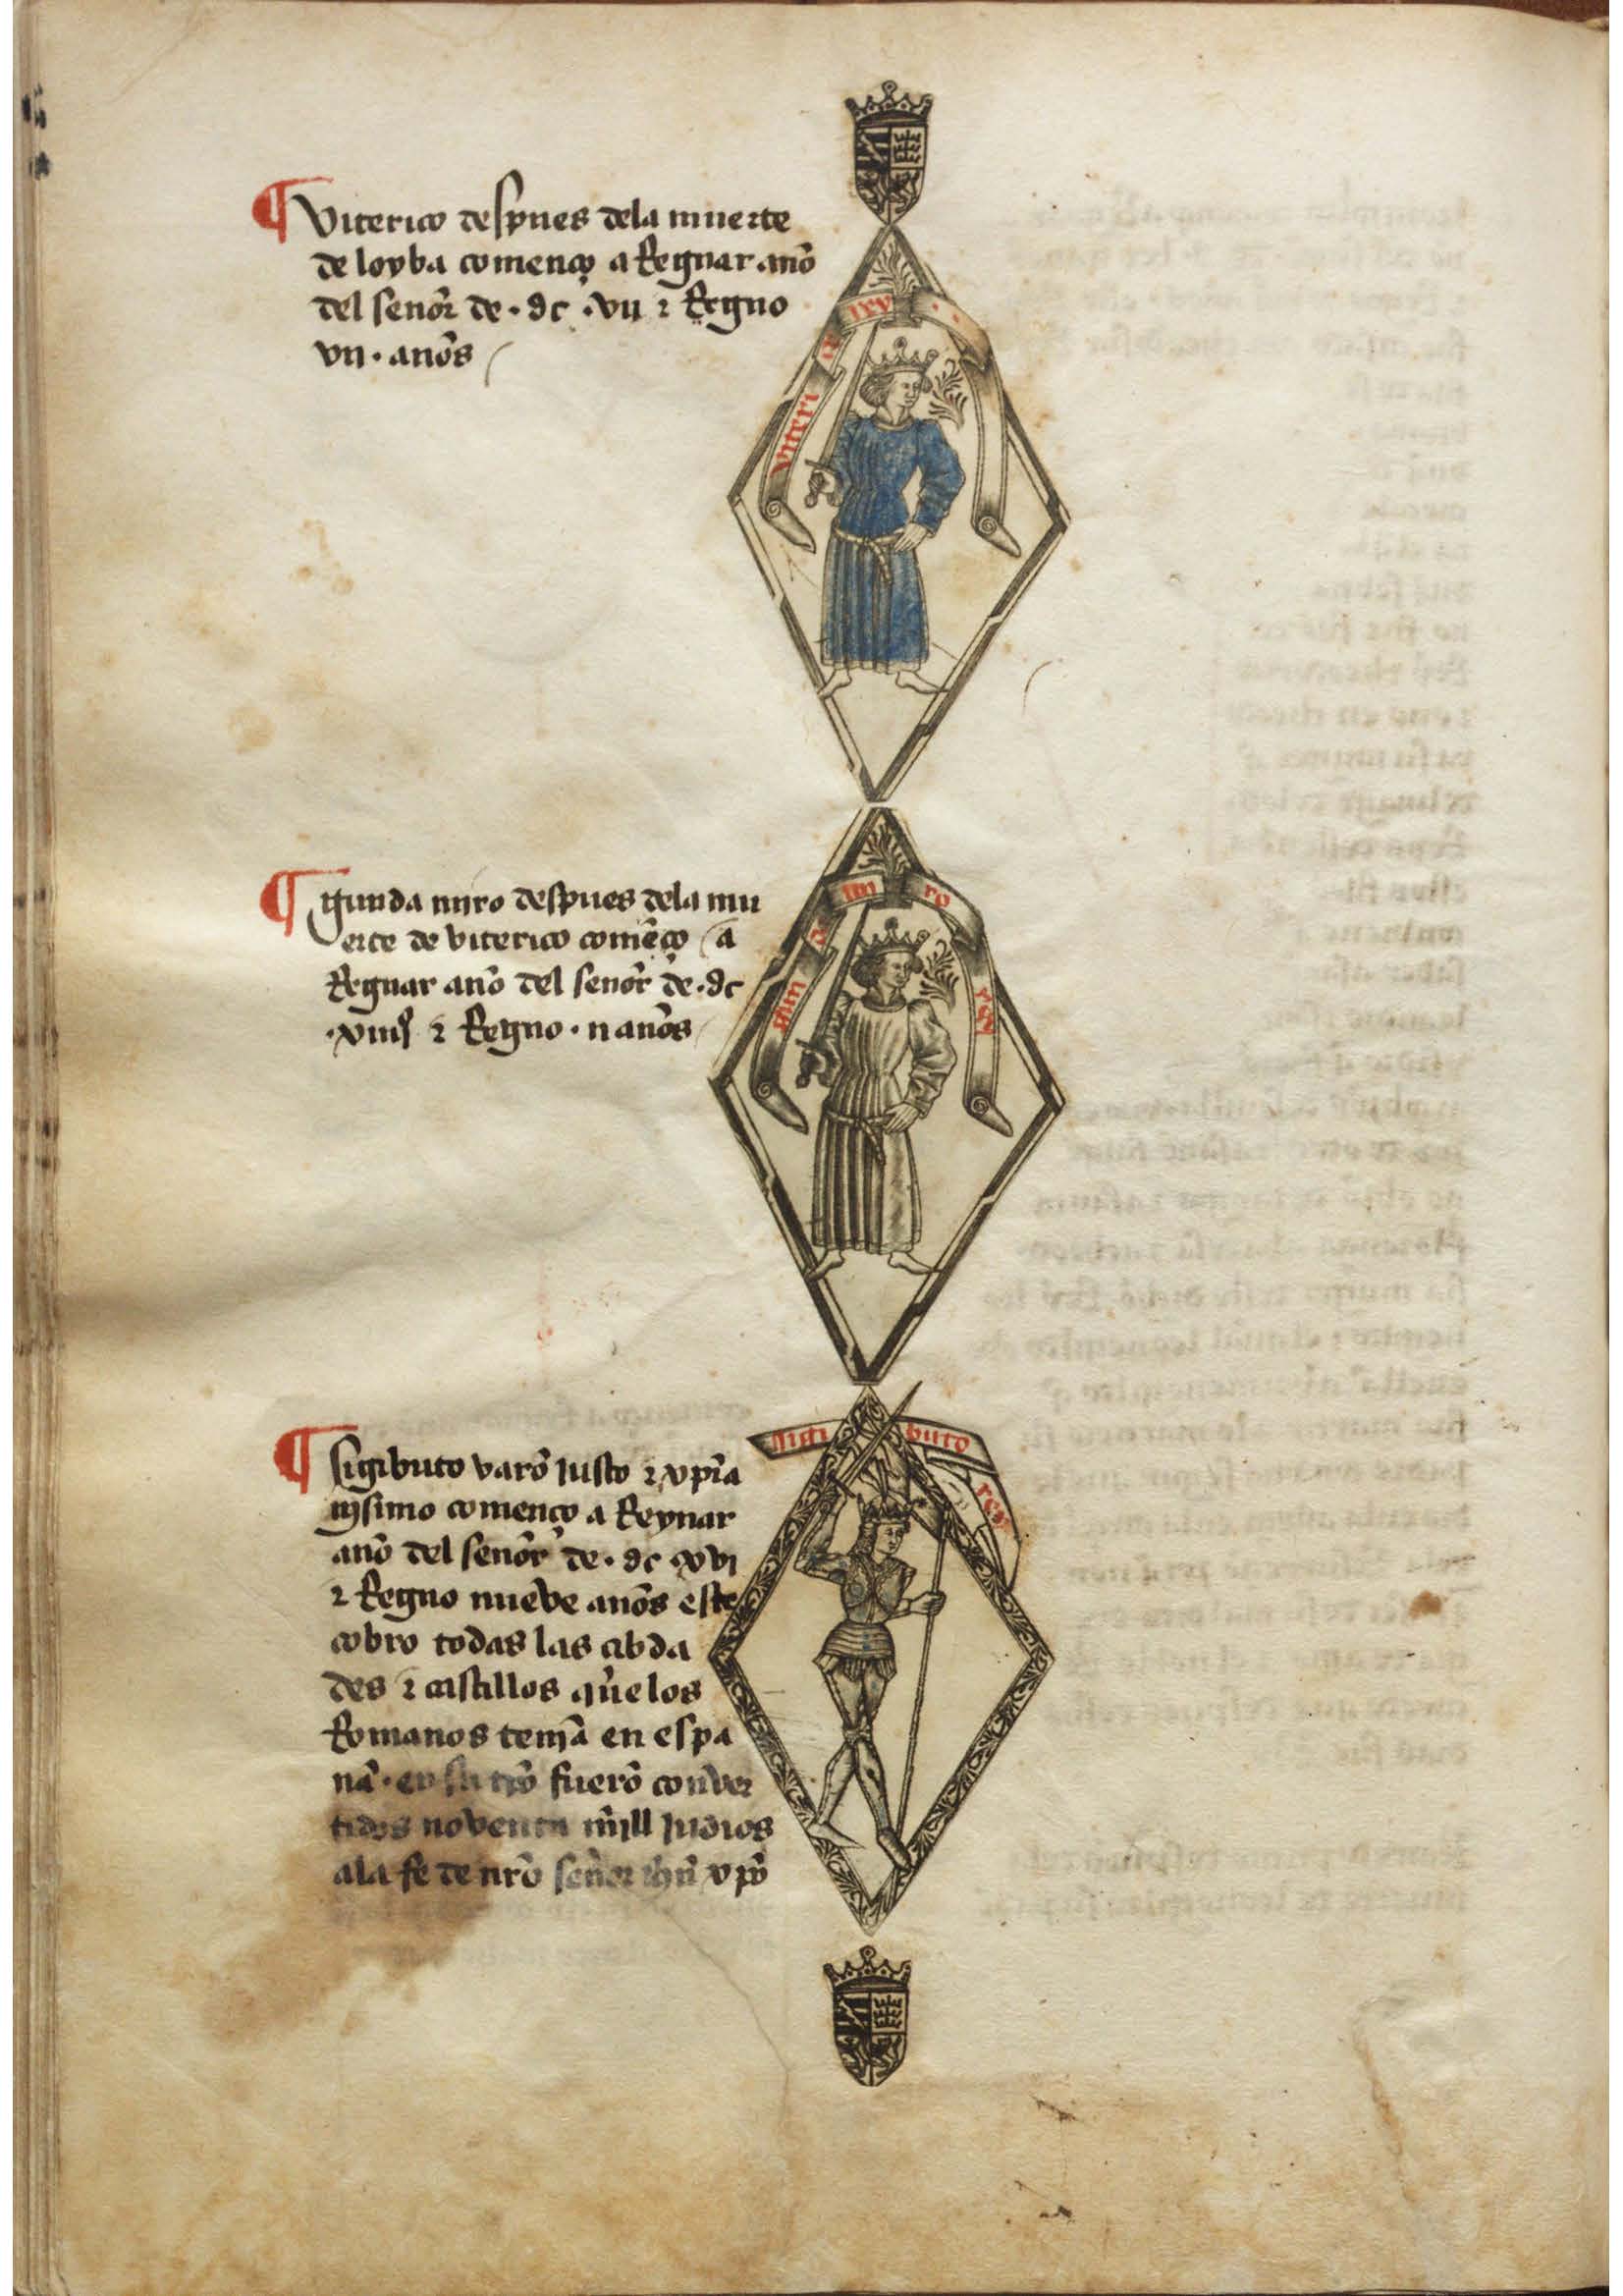 ¶ Viterico despues dela muerte
de loyba començo a Regnar anõ
del senõr de · dc · vii ⁊ Regno
vii · anõs
viteri
co
rey
¶ gunda miro despues dela mu
erte de viterico comẽço a
Regnar anõ del senõr de · dc
· xiiij ⁊ Regno · ii anõs
gun
d
a
mi
ro
rey
¶ sigibuto varõ justo ⁊ xp̃ia
nisimo començo a Reynar
anõ del senõr de · dc xvi
⁊ Regno nueve anõs este
cobro todas las cibda
des ⁊ castillos que los
Romanos teniã en espa
nã · en su tp̃o fuerõ conver
tidos noventa mill judios
ala fe de nrõ senõr ihũ xp̃o
sigi
buto
rey